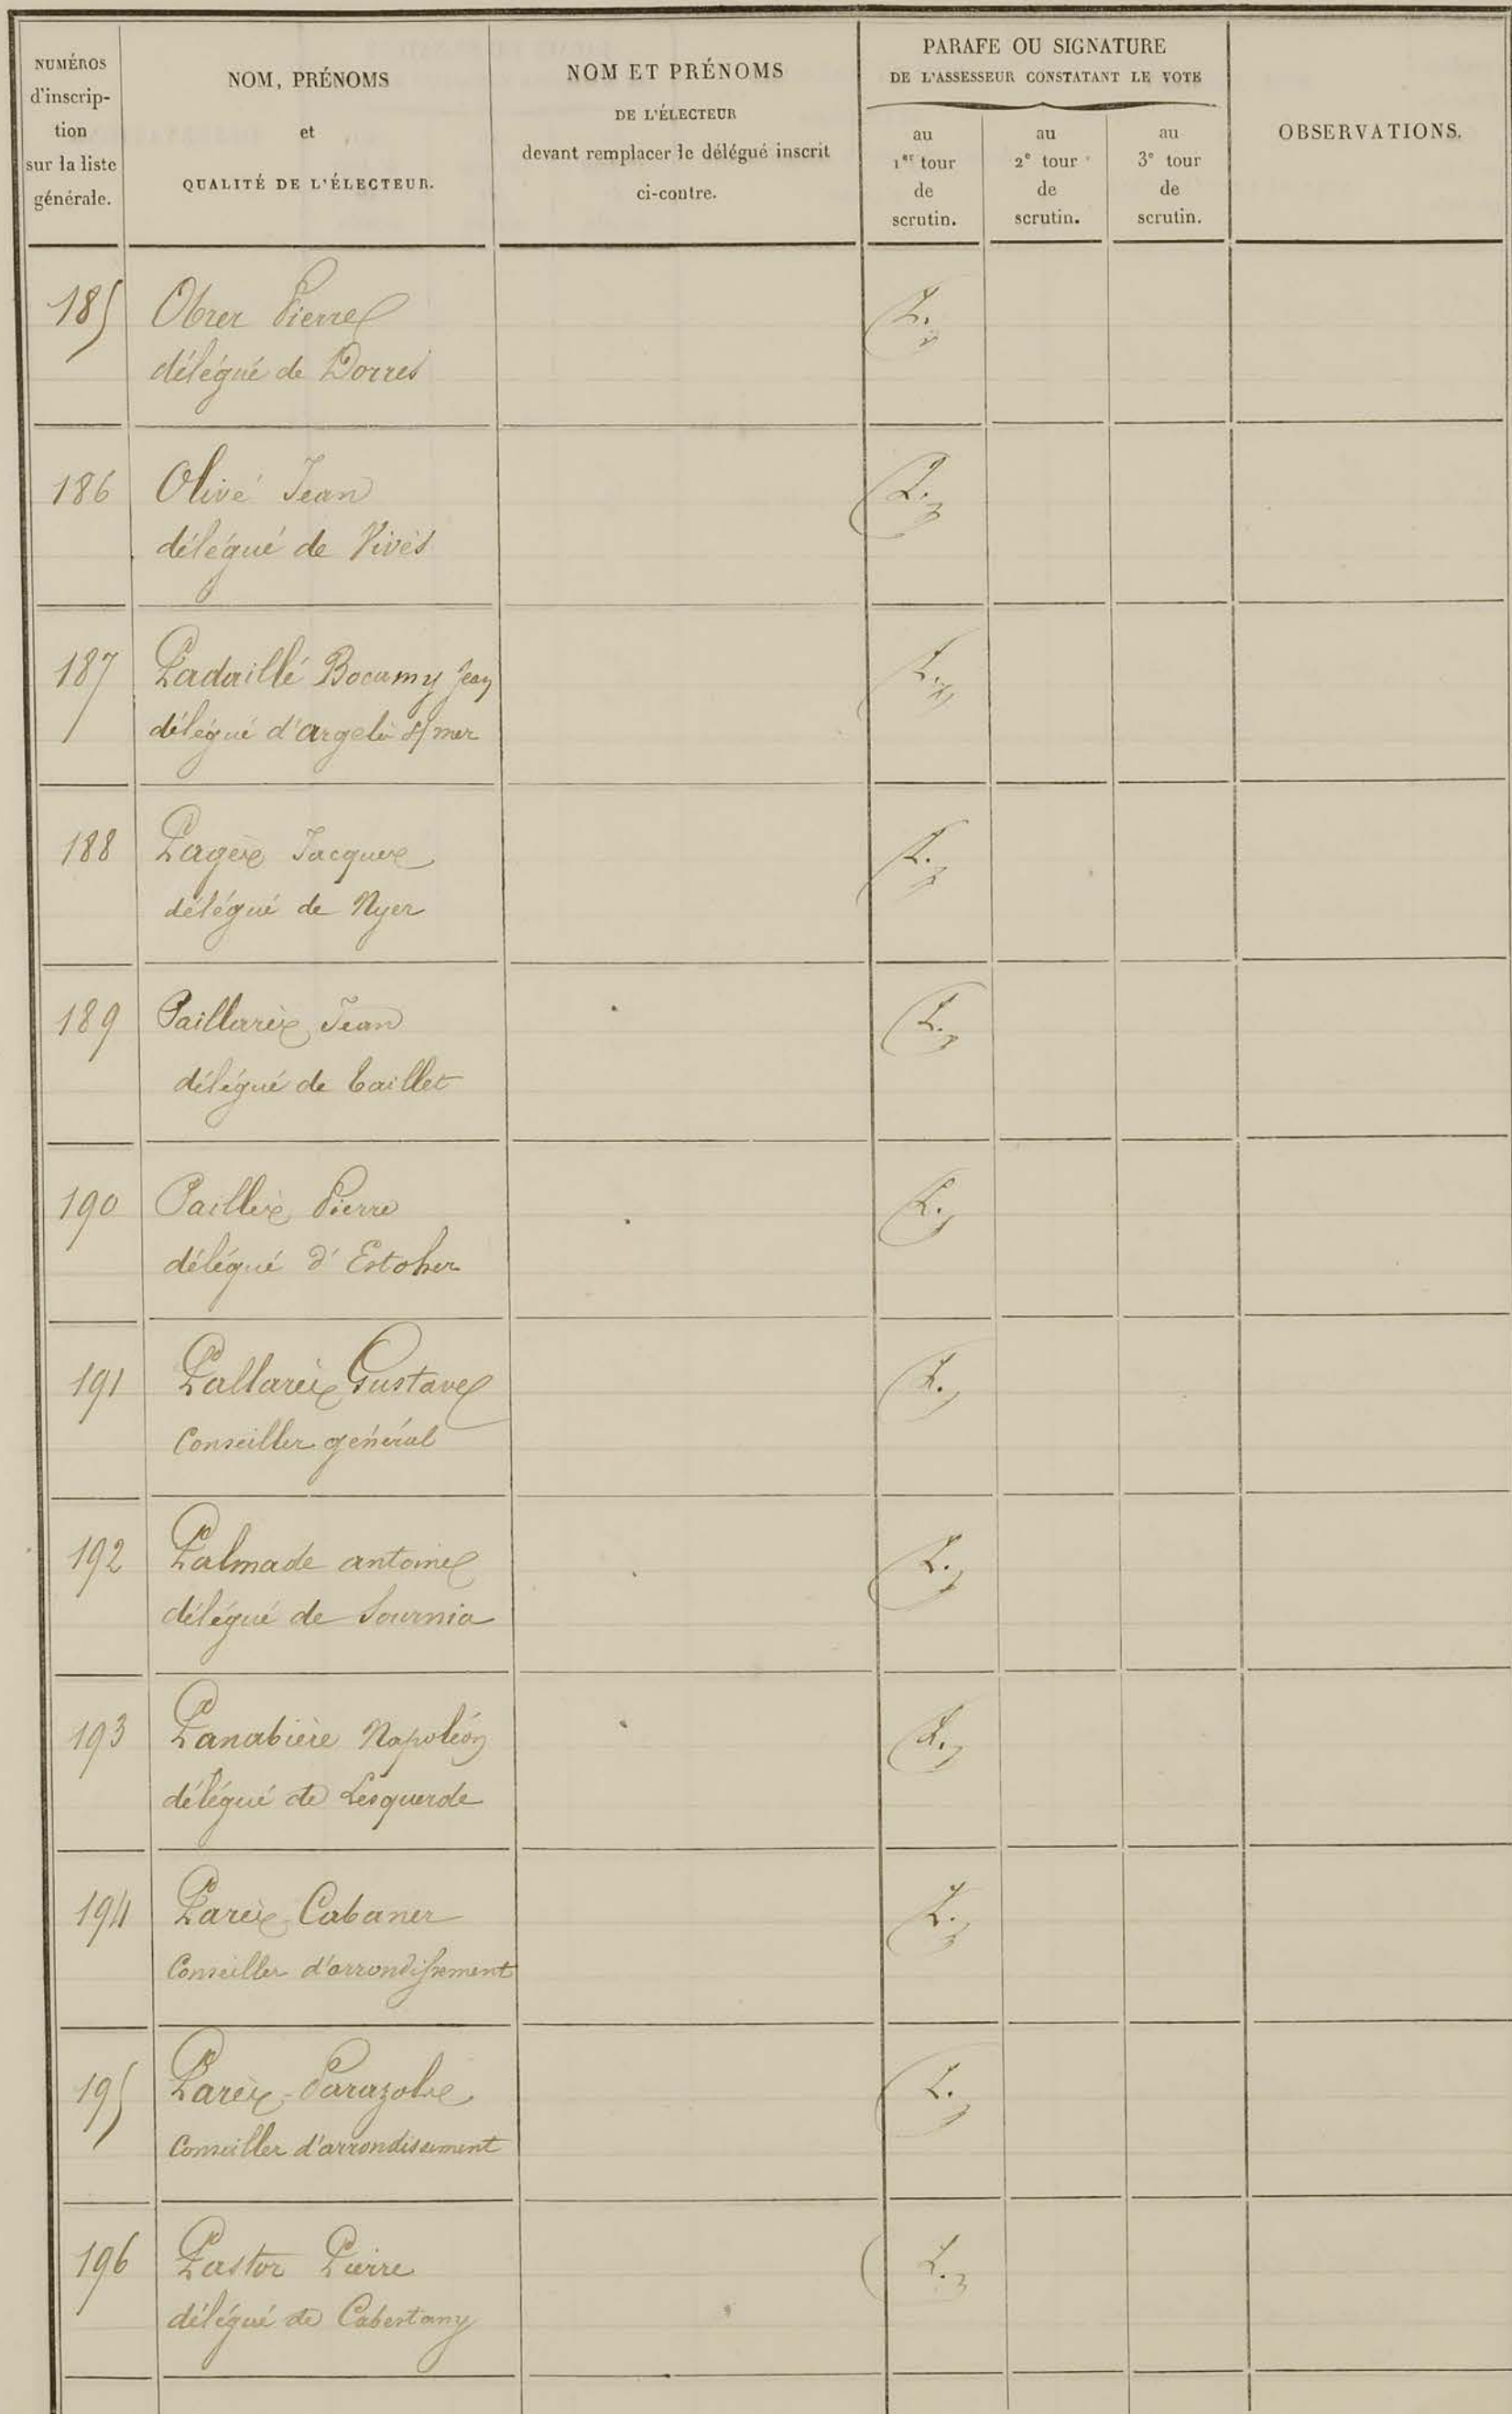 NUMÉROS
d'inscrip-
tion
sur la liste
générale.
NOM, PRÉNOMS
et
QUALITÉ DE L'ÉLECTEUR.
NOM ET PRÉNOMS
DE L'ÉLECTEUR
devant remplacer le délégué inscrit
ci-contre.
PARAFE OU SIGNATURE
DE L'ASSESSEUR CONSTATANT LE VOTE
au
1er tour
de
scrutin.
au
2e tour
de
scrutin.
au
3e tour
de
scrutin.
OBSERVATIONS.
185 Obrer Pierre
délégué de Dorres
186 Olivé Jean
délégué de Vivès
187 Padaillé Bocamy Jean
délégué d'argelès s/mer
188 Pagès Jacques
délégué de Nyer
189 Paillarès Jean
délégué de Taillet
190 Paillès Pierre
délégué d'Estoher
191 Pallarès Gustave
Conseiller général
192 Palmade antoine
délégué de Sournia
193 Panabière Napoléon
délégué de Lesquerde
194 Parès Cabaner
Conseiller d'arrondissement
195 Parès-Parazols
Conseiller d'arrondissement
196 Pastor Pierre
délégué de Cabestany